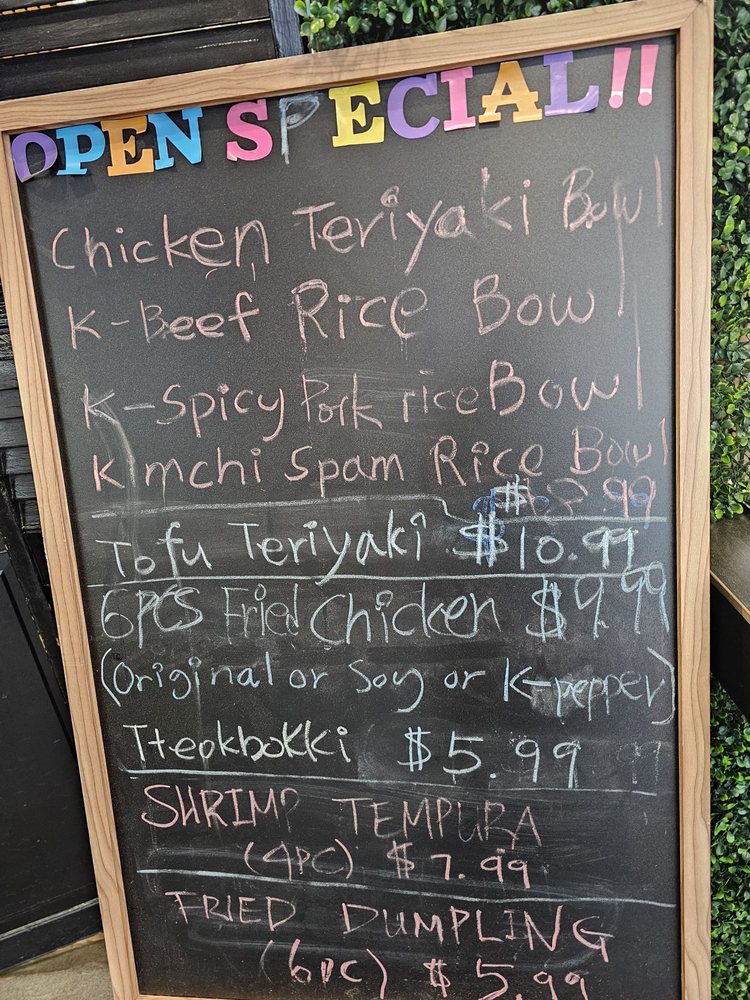 OPEN SPECIAL!!
Chicken Teriyaki Bowl
K-Beef Rice Bowl
K-Spicy Pork rice Bowl
Kimchi Spam Rice Bowl
Tofu Teriyaki $10.99
6PCS Fried Chicken $9.99
(Original or Soy or K-pepper)
Tteokbokki $5.99
SHRIMP TEMPURA
(4PC) $7.99
FRIED DUMPLING
(6PC) $5.99